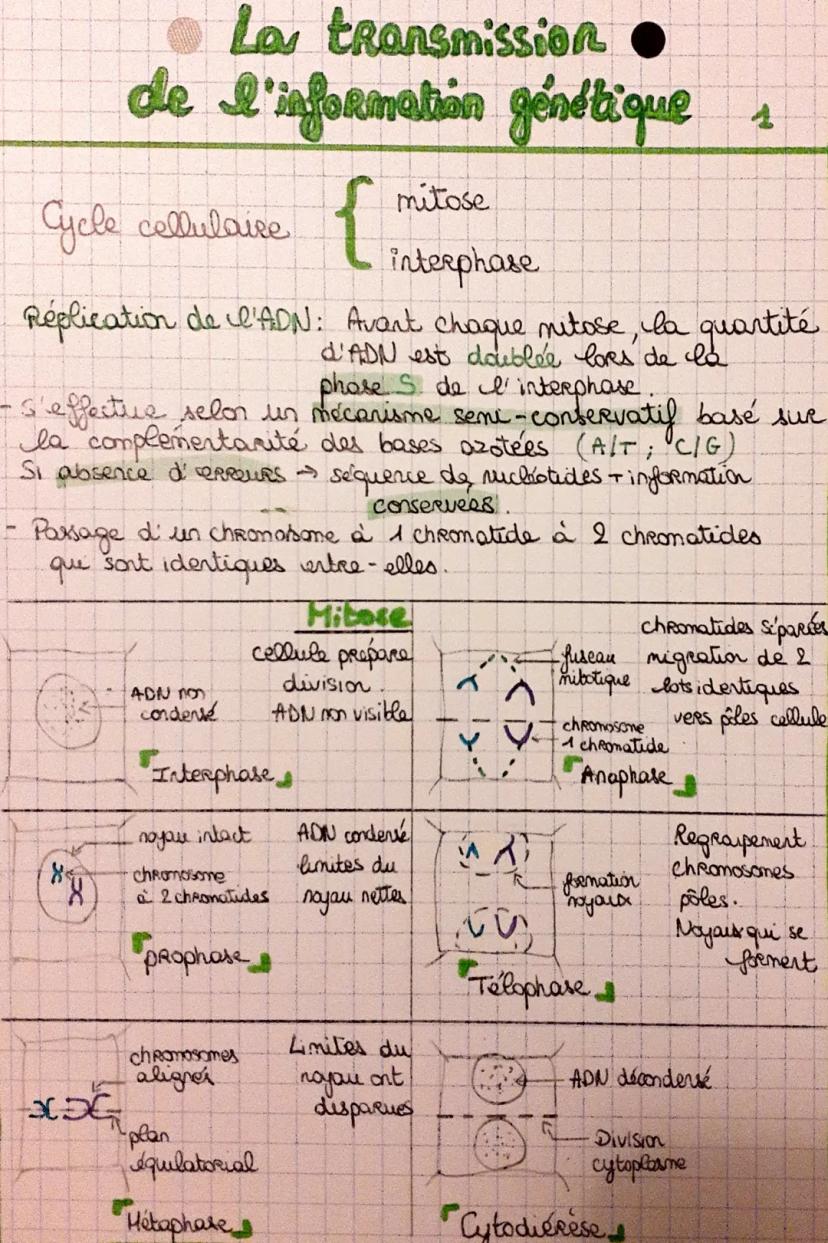 La transmission
de l'information génétique 1
Cycle cellulaire { mitose
interphase
Réplication de l'ADN : Avant chaque mitose, la quantité
d'ADN est doublée lors de la
phase S de l'interphase.
- S'effectue selon un mécanisme semi-conservatif basé sur
la complémentarité des bases azotées (A/T ; C/G)
Si absence d'erreurs → séquence de nucléotides + information
conservées.
- Passage d'un chromosome à 1 chromatide à 2 chromatides
qui sont identiques entre-elles.
Mitose
cellule prépare
division.
ADN non visible
ADN non
condensé
Interphase
noyau intact
chromosome
à 2 chromatides
ADN condensé
limites du
noyau nettes
prophase
chromosomes
alignés
plan
équilatorial
Limites du
noyau ont
disparues
Métaphase
chromatides séparées
migration de 2
lots identiques
vers pôles cellule
fuseau
mitotique
chromosome
1 chromatide
Anaphase
formation
noyaux
Regroupement
chromosomes
pôles.
Noyaux qui se
forment
Télophase
ADN décondensé
Division
cytoplasme
Cytodiérèse